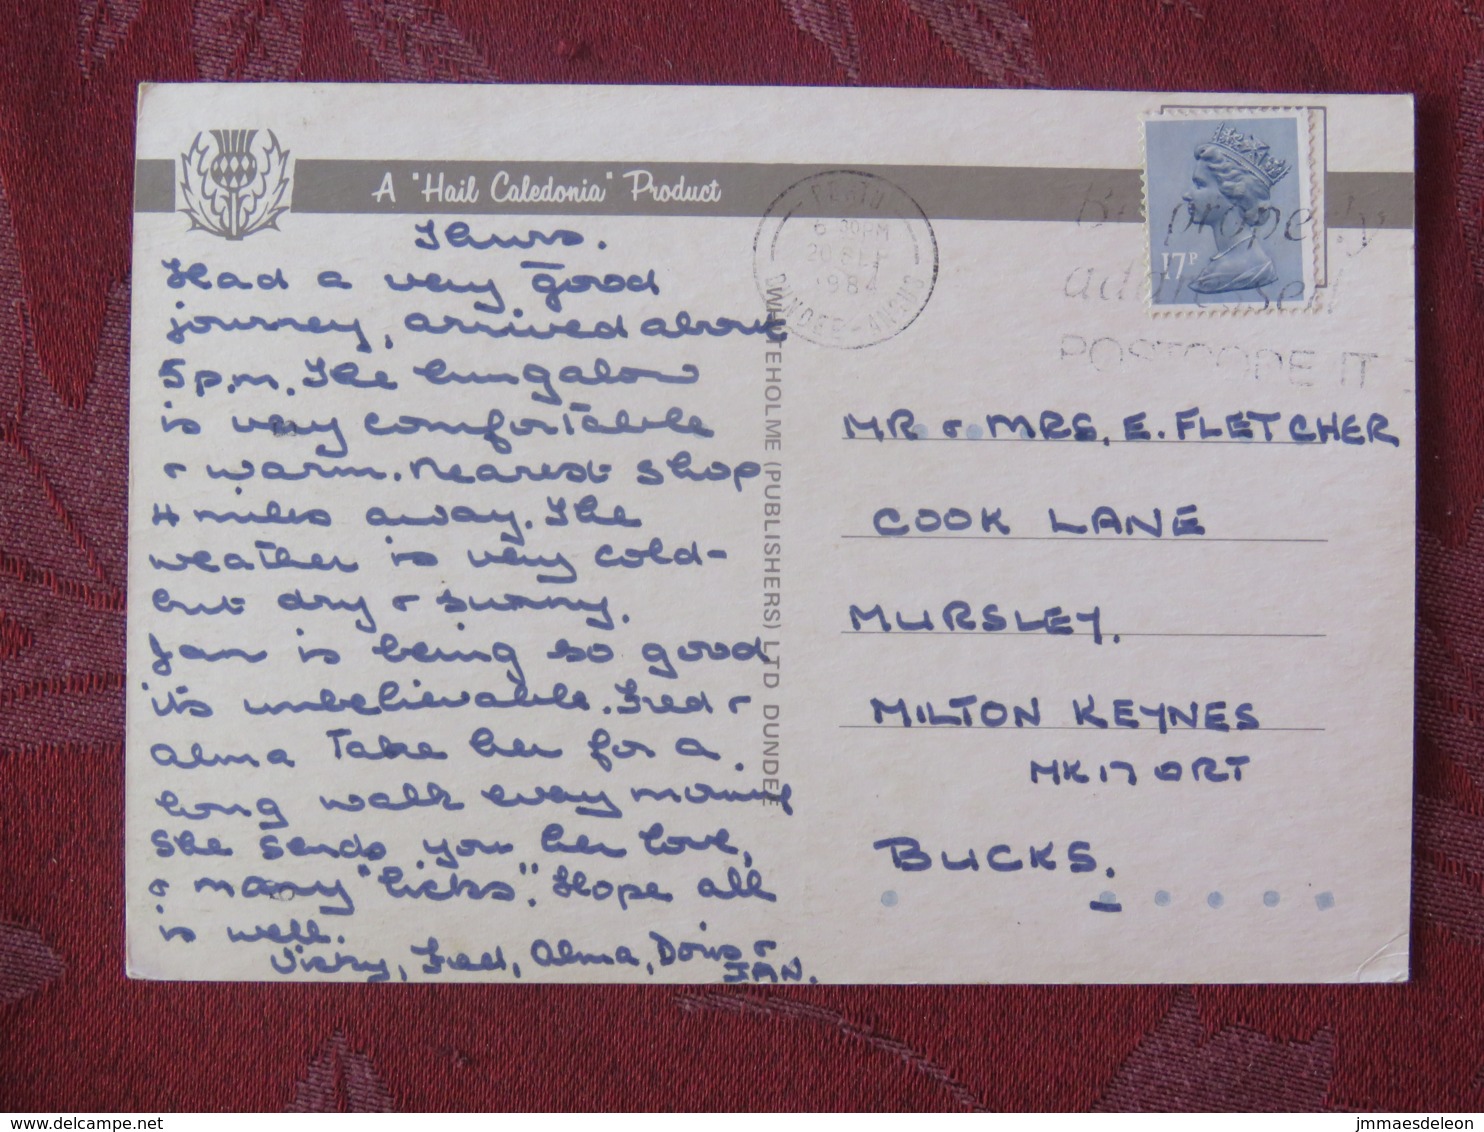 A "Hail Caledonia" Product
Thurs.
Had a very good
journey, arrived about
5 p.m. The bungalow
is very comfortable
& warm. Nearest shop
4 miles away. The
weather is very cold -
but dry & sunny.
Jan is being so good
its unbelievable. Fred &
Alma take her for a
long walk every morning
She sends you her love,
& many "licks". Hope all
is well.
Vicky, Fred, Alma, Doris &
JAN.
WHITEHOLME (PUBLISHERS) LTD DUNDEE
PERTH
6 30PM
20 SEP
1984
DUNDEE - ANGUS
17P
Be properly
addressed
POSTCODE IT
MR & MRS. E. FLETCHER
COOK LANE
MURSLEY.
MILTON KEYNES
MK17 0RT
BUCKS.
www.delcampe.net
jmmaesdeleon